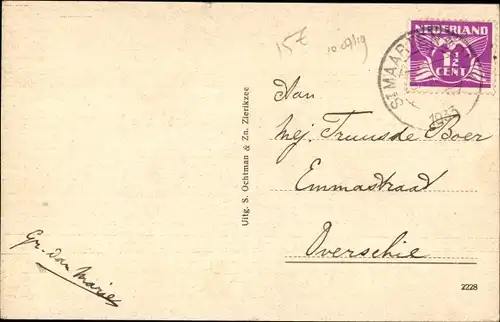 15€
NEDERLAND
1½
CENT
ST MAAR
1933
Aan
Mej. Truus de Boer
Emmastraat
Overschie
Uitg. S. Ochtman & Zn. Zierikzee
Gr. van Marie
2228